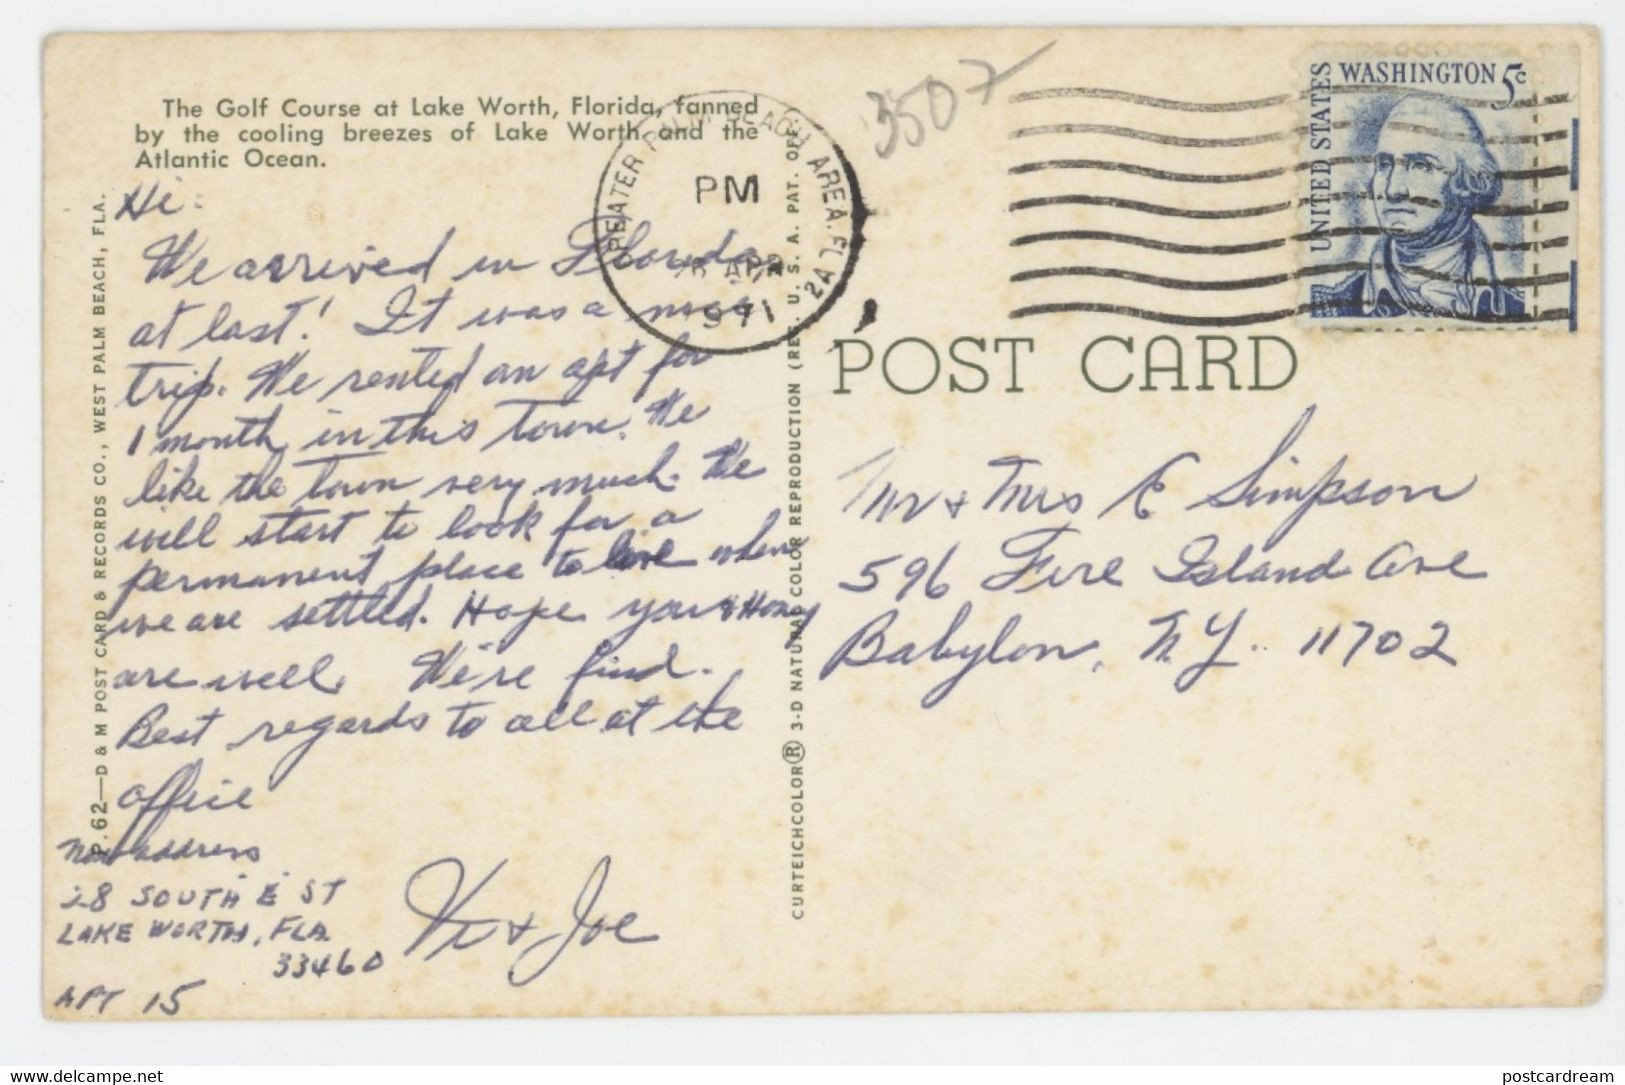 The Golf Course at Lake Worth, Florida, fanned
by the cooling breezes of Lake Worth and the
Atlantic Ocean.
Hi:
We arrived in Florida
at last! It was a nice
trip. We rented an apt for
1 month in this town. We
like the town very much. We
will start to look for a
permanent place to live when
we are settled. Hope you & Honey
are well. We're find.
Best regards to all at the
office
New address
28 SOUTH E ST
LAKE WORTH, FLA
33460
APT 15
Vi + Joe
P.62—D & M POST CARD & RECORDS CO., WEST PALM BEACH, FLA.
CURTEICHCOLOR® 3-D NATURAL COLOR REPRODUCTION (REG. U. S. A. PAT. OFF.
GREATER PALM BEACH AREA, FL
PM
APR
1971
2A
3507
UNITED STATES
WASHINGTON 5c
POST CARD
Mr + Mrs E Simpson
596 Fire Island Ave
Babylon, N.Y. 11702
delcampe.net
postcardream